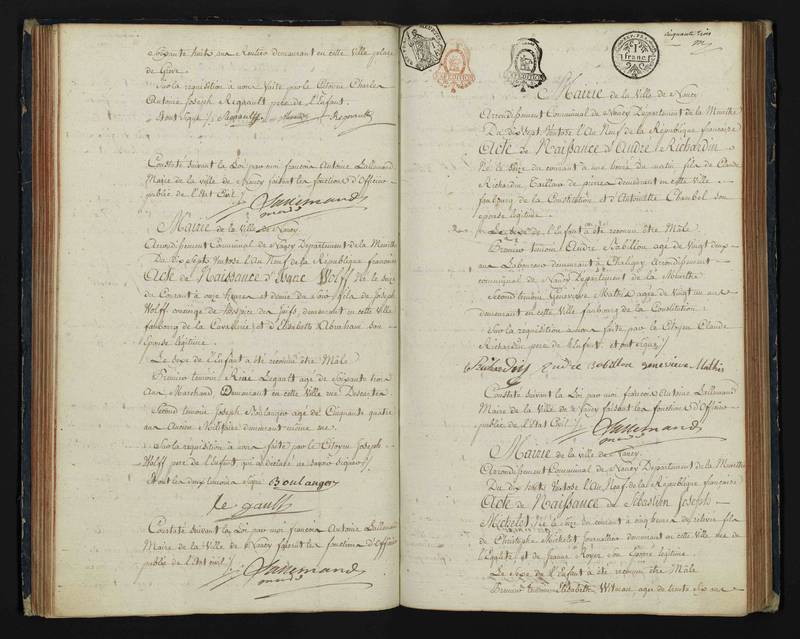 Soixante huit ans Rentier demeurant en cette Ville place
de Greve
Sur la requisition à nous faite par le Citoyen Charles
Antoine Joseph Regnault pere de l'Enfant.
et ont signé
Constaté suivant la Loi par moi françois Antoine Lallemand
Maire de la ville de Nancy faisant les fonctions d'Officier
public de l'Etat Civil
Lallemand
maire
Mairie de la Ville de Nancy.
Arrondissement Communal de Nancy Département de la Meurthe
Du dix Sept Ventose l'An Neuf de la République française
Acte de Naissance d'Isaac Wolff Né le seize
du Courant à onze heures et demie du soir fils de Joseph
Wolff concierge de l'hospice des Juifs, demeurant en cette Ville
faubourg de la Cavallerie et d'Elisabeth Abraham son
épouse légitime
Le sexe de l'Enfant a été reconnu être Mâle
Premier temoin René Legault agé de Soixante trois
ans Marchand Demeurant en cette Ville rue Descartes
Second temoin Joseph Boulanger agé de Cinquante quatre
ans Ancien Militaire demeurant même rue
Sur la requisition à nous faite par le Citoyen Joseph
Wolff pere de l'enfant qui a déclaré ne savoir signer
et ont les deux temoins signé Boulanger
le gault
Constaté suivant la Loi par moi françois Antoine Lallemand
Maire de la Ville de Nancy faisant les fonctions d'Officier
public de l'Etat civil
Lallemand
maire
1
franc
cinquante trois
Mairie de la Ville de Nancy
Arrondissement Communal de Nancy Département de la Meurthe
Du dix Sept Ventose l'An Neuf de la République française
Acte de Naissance d'André Richardin
Né le seize du courant à une heure du matin fils de Claude
Richardin Tailleur de pierres demeurant en cette Ville
faubourg de la Constitution et d'Antoinette Chaubel son
épouse légitime
Le sexe de l'Enfant a été reconnu être Mâle
Premier temoin André Bobillon agé de Vingt deux
ans Laboureur demeurant à Chaligny Arrondissement
communal de Nancy Département de la Meurthe
Second temoin Genevieve Mathis agée de Vingt un ans
demeurant en cette Ville faubourg de la Constitution
Sur la requisition à nous faite par le Citoyen Claude
Richardin pere de l'Enfant et ont signé
Richardin andré bobillon genevieve Mathis
Constaté suivant la Loi par moi françois Antoine Lallemand
Maire de la Ville de Nancy faisant les fonctions d'Officier
public de l'Etat Civil
Lallemand
maire
Mairie de la ville de Nancy.
Arrondissement Communal de Nancy Département de la Meurthe
Du dix Sept Ventose l'An Neuf de la République française
Acte de Naissance de Sébastien Joseph
Michelot Né le seize du courant à cinq heures de relevée fils
de Christophe Michelot Journallier demeurant en cette Ville rue de
l'Egalité et de Jeanne Royer son Epouse légitime.
Le sexe de l'Enfant a été reconnu être Mâle
Premier temoin Elisabeth Witman agée de trente six ans